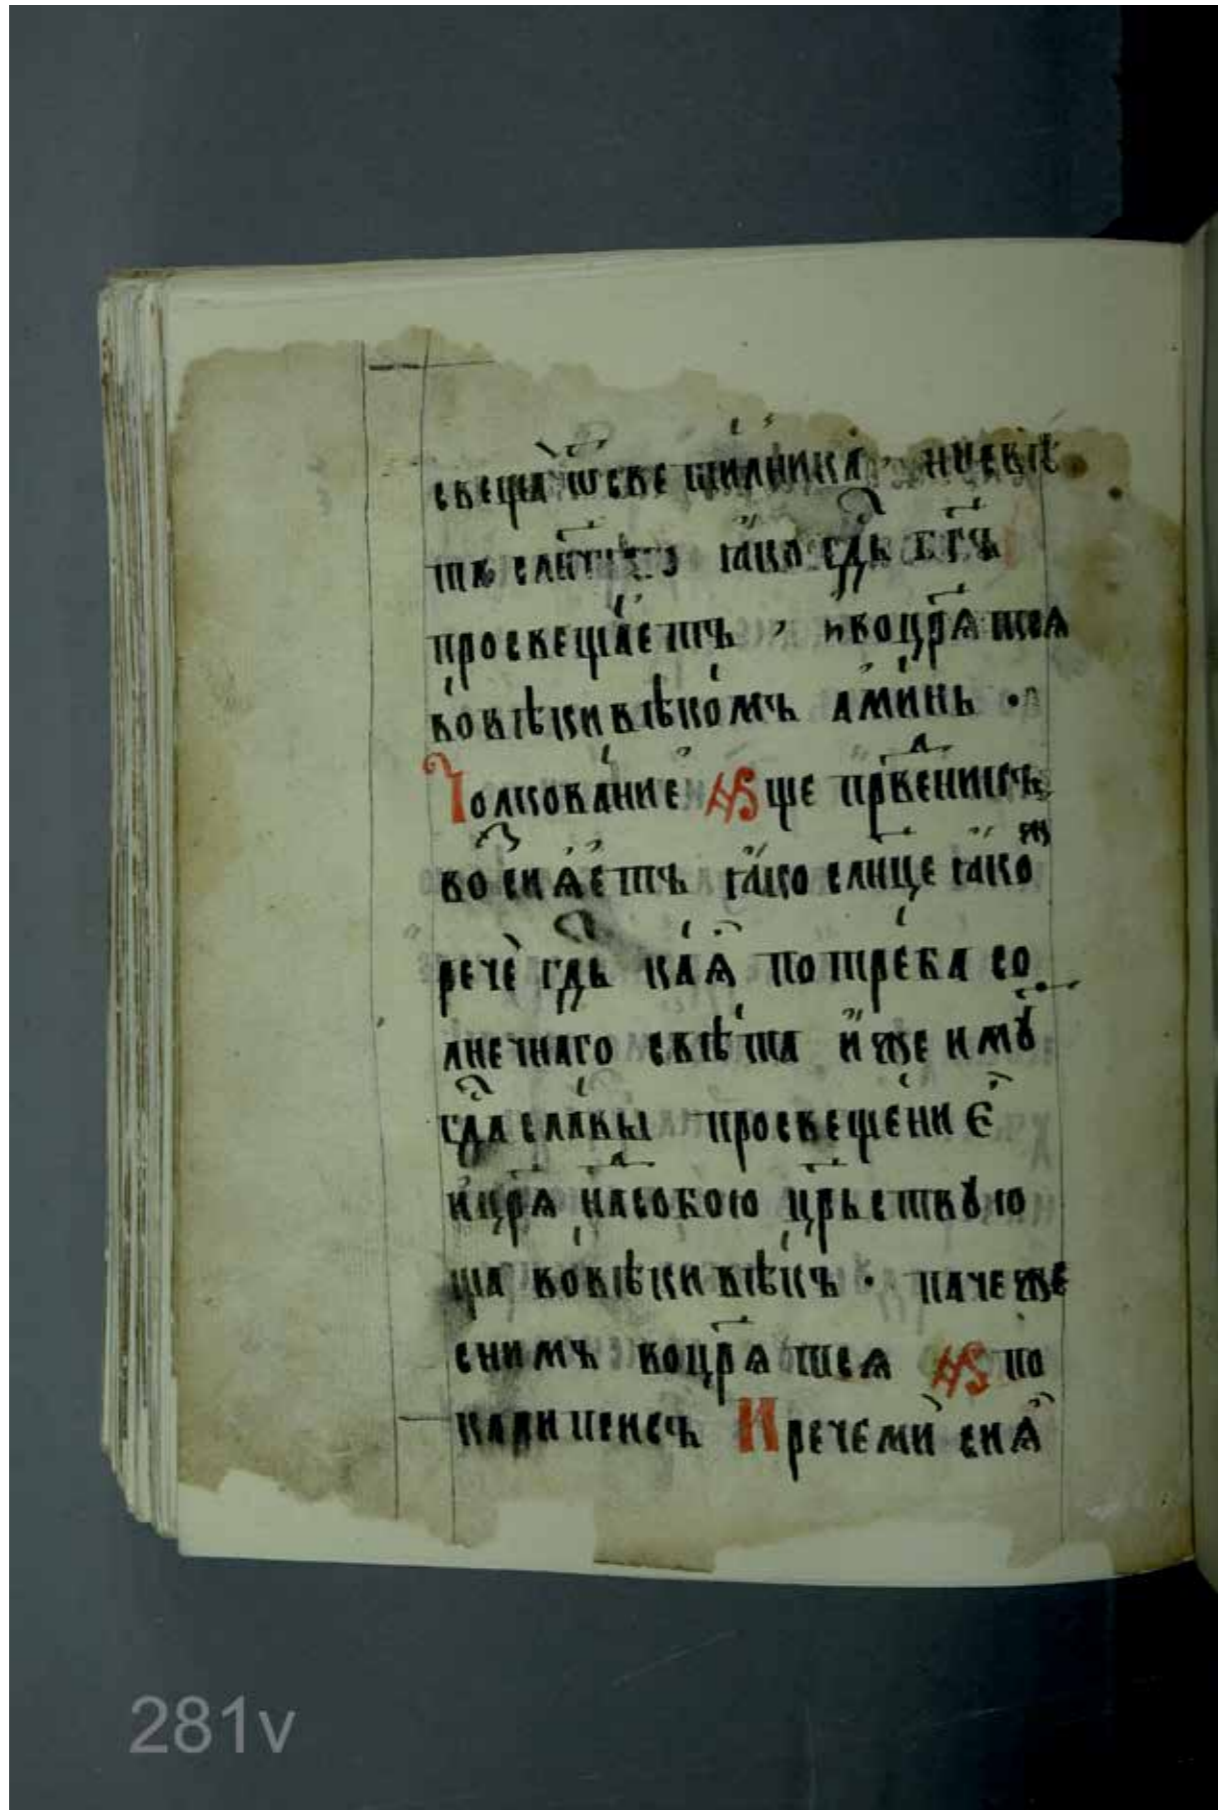 свеща ѿ свещилника, ни свѣ
та слн҃чнаго ꙗко гд҇ь бг҃ъ
просвещаетъ, и воцр҃ѧтсѧ
вовѣки вѣкомъ аминь ·
Толкование аще прв҇еницы
восиѧетъ ꙗко слн҃це ꙗкоⷤ
рече гд҇ь каѧ потреба со
лнечнаго свѣта иже имꙋ
гд҇а славы просвещение
и цр҃ѧ надсобою црь҃ствꙋю
ща вовѣки вѣкъ · паче же
снимъ воцр҃ѧтсѧ апо
калипсисъ И рече ми сиѧ
281v